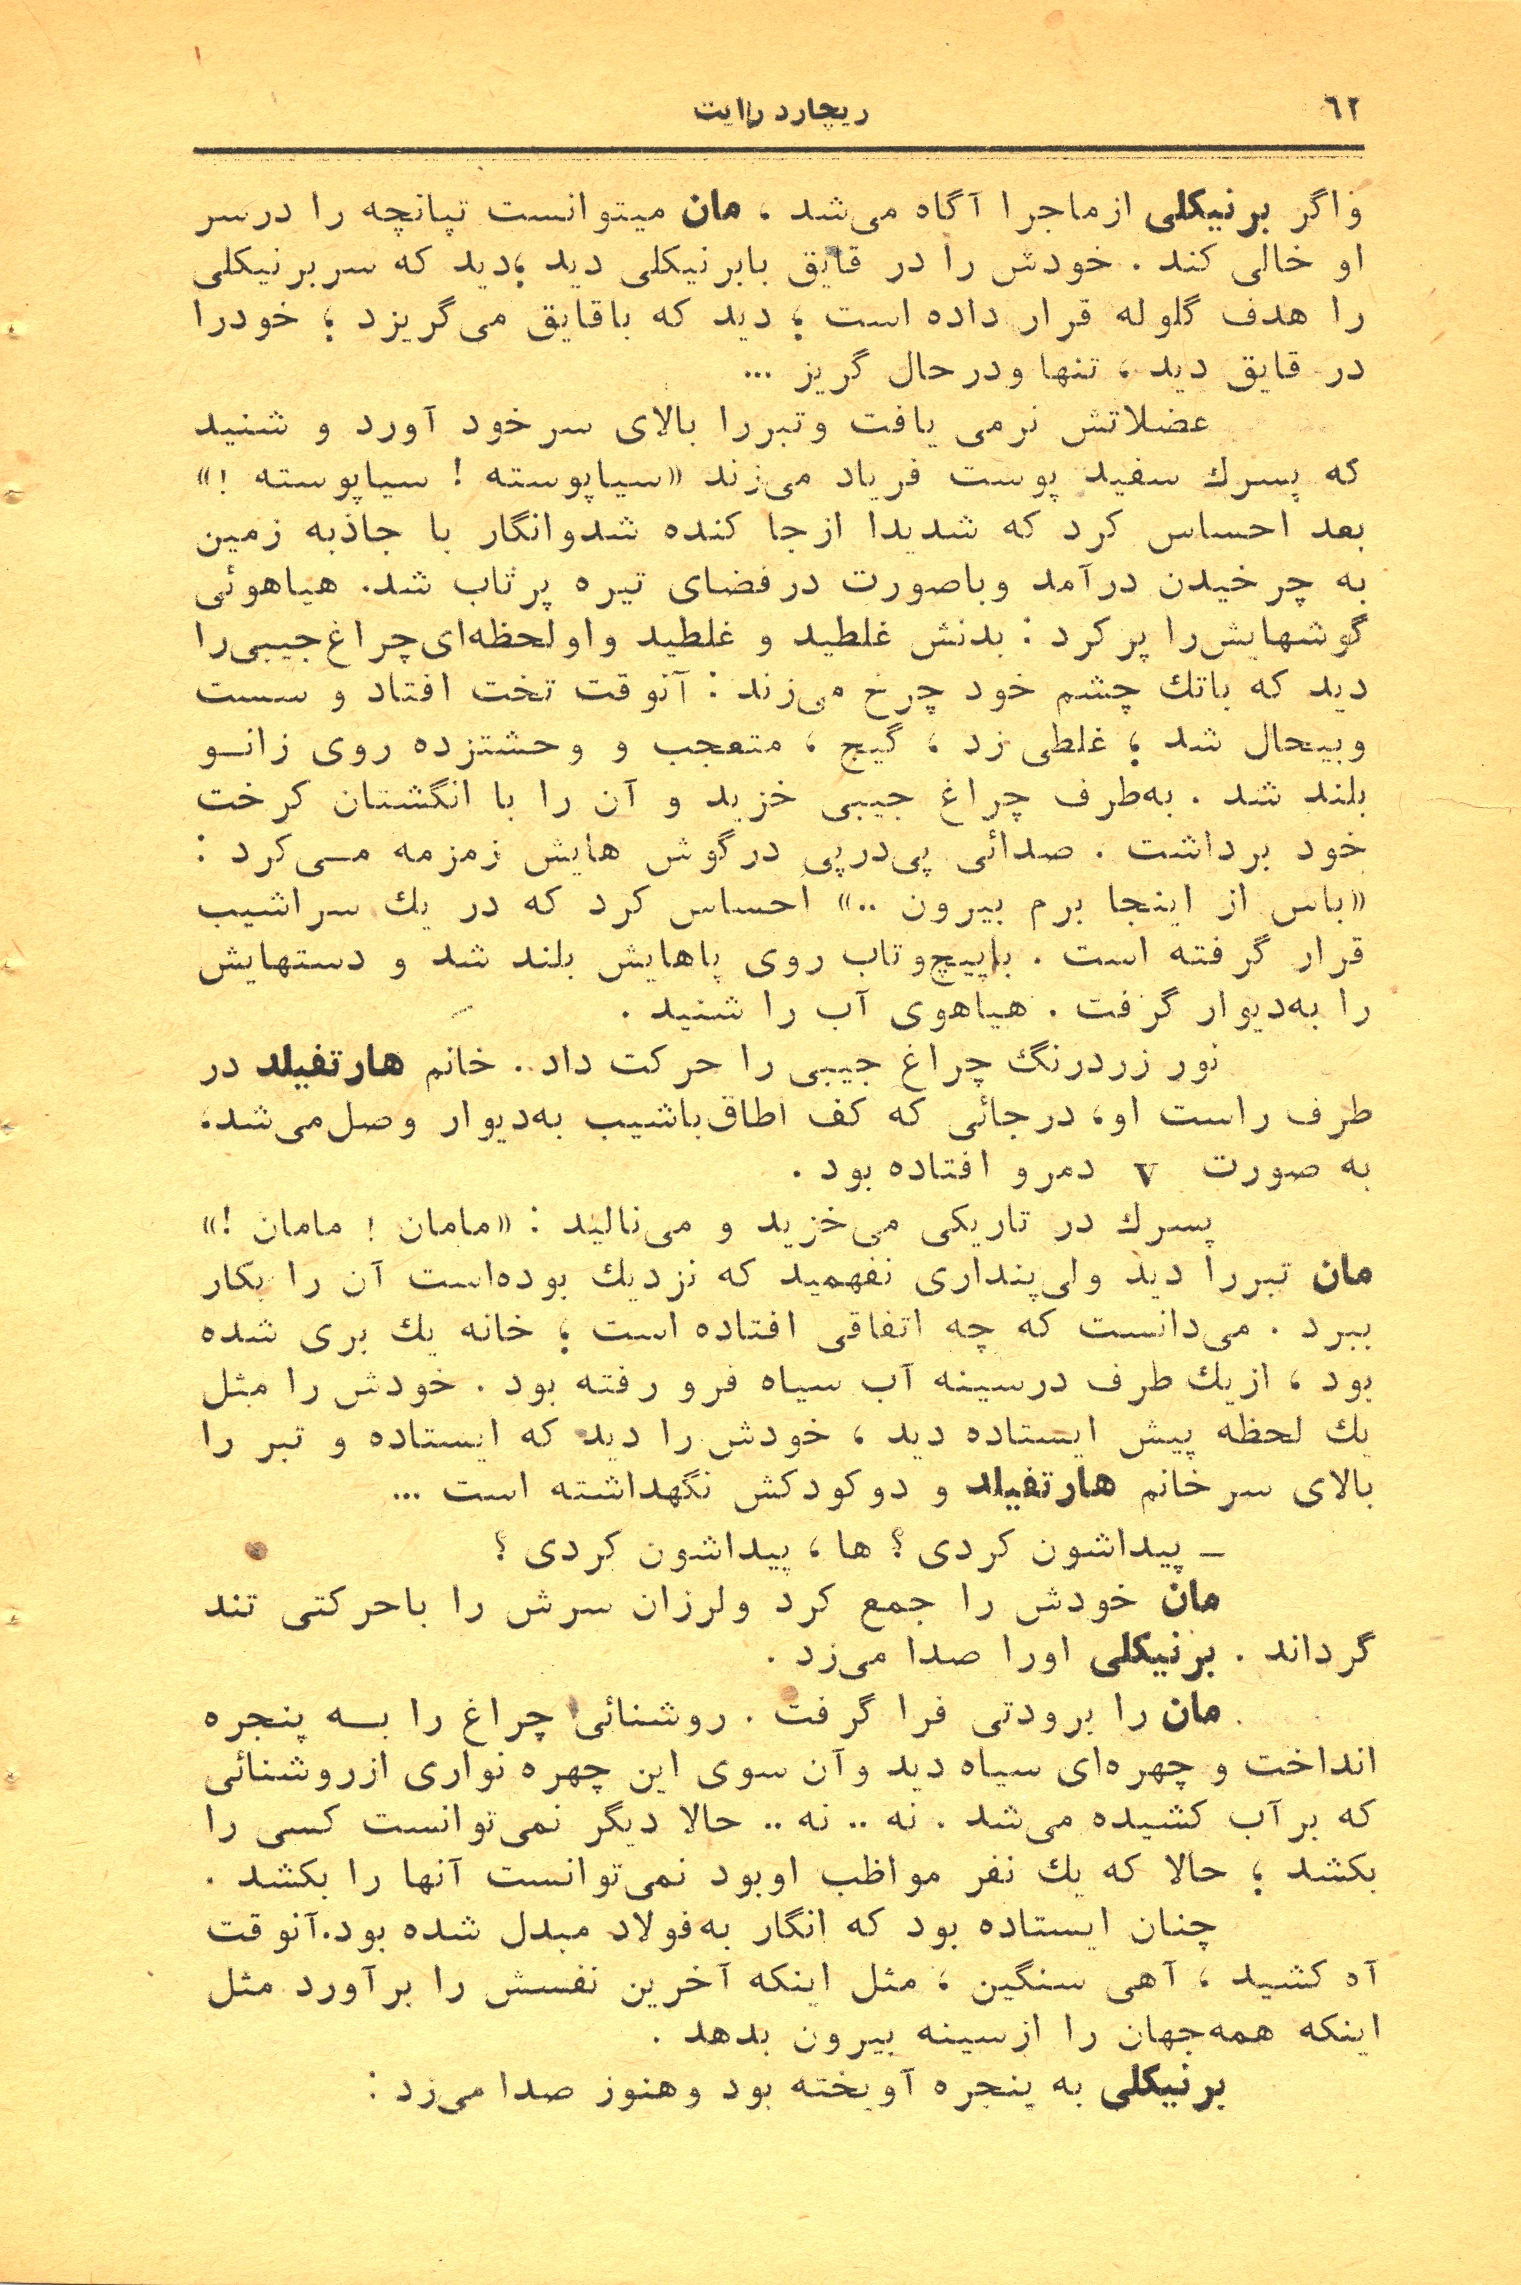 ۶۲
ریچارد رایت
واگر برنیکلی ازماجرا آگاه می‌شد ، مان میتوانست تپانچه را درسر
او خالی کند . خودش را در قایق بابرنیکلی دید ؛دید که سربرنیکلی
را هدف گلوله قرار داده است ؛ دید که باقایق می‌گریزد ؛ خودرا
در قایق دید ، تنها ودرحال گریز ...
عضلاتش نرمی یافت وتبررا بالای سرخود آورد و شنید
که پسرك سفید پوست فریاد می‌زند «سیاپوسته ! سیاپوسته !»
بعد احساس کرد که شدیدا ازجا کنده شدوانگار با جاذبه زمین
به چرخیدن درآمد وباصورت درفضای تیره پرتاب شد. هیاهوئی
گوشهایش‌را پرکرد : بدنش غلطید و غلطید واولحظه‌ای‌چراغ‌جیبی‌را
دید که باتك چشم خود چرخ می‌زند : آنوقت تخت افتاد و سست
وبیحال شد ؛ غلطی زد ، گیج ، متعجب و وحشتزده روی زانــو
بلند شد . به‌طرف چراغ جیبی خزید و آن را با انگشتان کرخت
خود برداشت . صدائی پی‌درپی درگوش هایش زمزمه مــی‌کرد :
«باس از اینجا برم بیرون ..» احساس کرد که در یك سراشیب
قرار گرفته است . باپیچ‌وتاب روی پاهایش بلند شد و دستهایش
را به‌دیوار گرفت . هیاهوی آب را شنید .
نور زردرنگ چراغ جیبی را حرکت داد . خانم هارتفیلد در
طرف راست او، درجائی که کف اطاق‌باشیب به‌دیوار وصل‌می‌شد،
به صورت V دمرو افتاده بود .
پسرك در تاریکی می‌خزید و می‌نالید : «مامان ! مامان !»
مان تبررا دید ولی‌پنداری نفهمید که نزدیك بوده‌است آن را بکار
ببرد . می‌دانست که چه اتفاقی افتاده است ؛ خانه یك بری شده
بود ، ازیك طرف درسینه آب سیاه فرو رفته بود . خودش را مثل
یك لحظه پیش ایستاده دید ، خودش را دید که ایستاده و تبر را
بالای سرخانم هارتفیلد و دوکودکش نگهداشته است ...
ـ پیداشون کردی؟ ها ، پیداشون کردی ؟
مان خودش را جمع کرد ولرزان سرش را باحرکتی تند
گرداند . برنیکلی اورا صدا می‌زد .
مان را برودتی فرا گرفت . روشنائی چراغ را بــه پنجره
انداخت و چهره‌ای سیاه دید وآن سوی این چهره نواری ازروشنائی
که برآب کشیده می‌شد . نه .. نه .. حالا دیگر نمی‌توانست کسی را
بکشد ؛ حالا که یك نفر مواظب اوبود نمی‌توانست آنها را بکشد .
چنان ایستاده بود که انگار به‌فولاد مبدل شده بود.آنوقت
آه کشید ، آهی سنگین ، مثل اینکه آخرین نفسش را برآورد مثل
اینکه همه‌جهان را ازسینه بیرون بدهد .
برنیکلی به پنجره آویخته بود وهنوز صدا می‌زد :